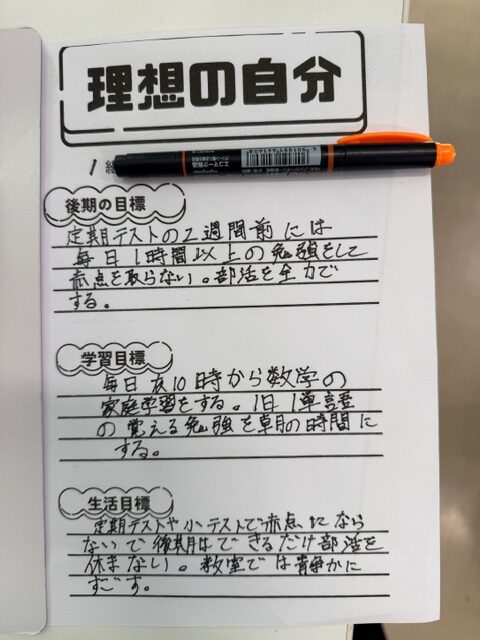 理想の自分
1
後期の目標
定期テストの2週間前には
毎日1時間以上の勉強をして
赤点を取らない。部活を全力で
する。
学習目標
毎日夜10時から数学の
家庭学習をする。1日1単語
の覚える勉強を朝の時間に
する。
生活目標
定期テストや小テストで赤点になら
ないで後期はできるだけ部活を
休まない。教室では静かに
すごす。
エコマーク商品
4901991641608